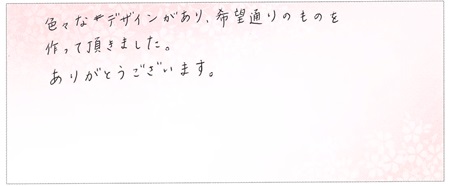 色々なデザインがあり、希望通りのものを
作って頂きました。
ありがとうございます。